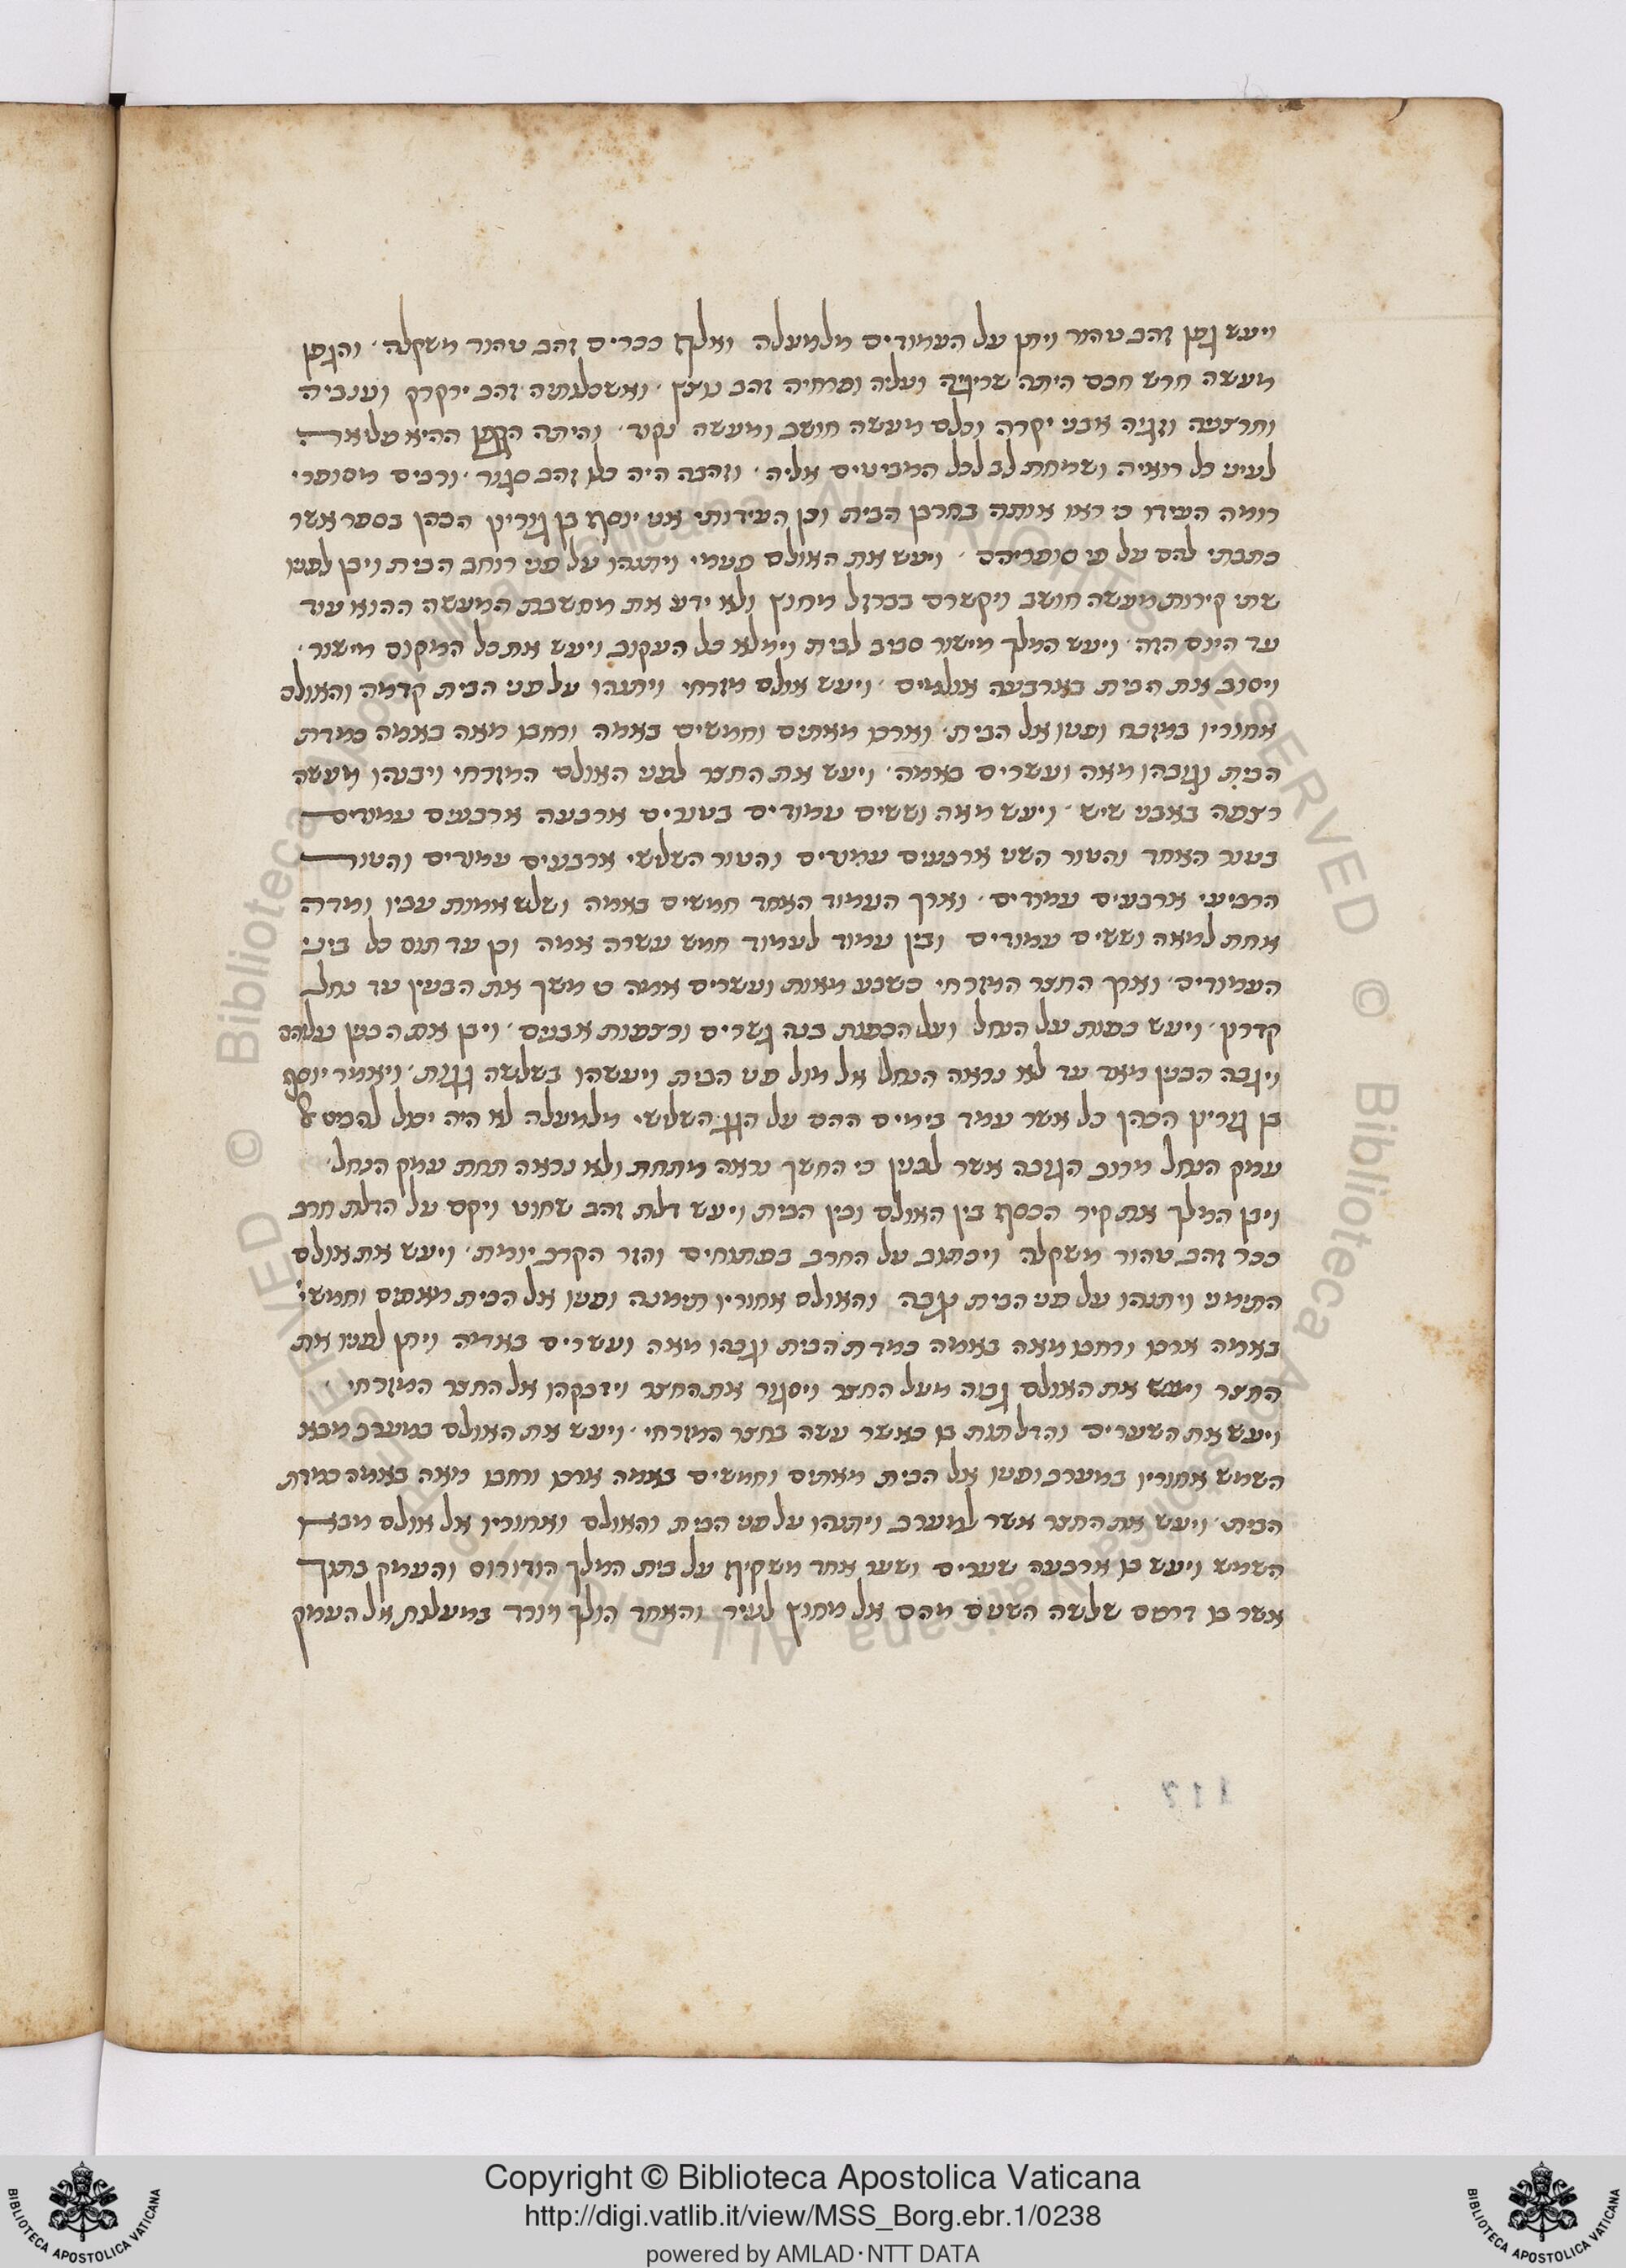 ויעש גפן זהב טהור ויתן על העמודים מלמעלה ואלף ככרים זהב טהור משקלה׳ והגפן
מעשה חרש חכם היתה שריגיה ועליה ופרחיה זהב נוצץ׳ ואשכלותיה זהב ירקרק וענביה
וחרצניה וזגיה אבני יקרה וכלם מעשה חושב ומעשה נקוד׳ והיתה הגפן ההיא פליאה
לעיני כל רואיה ושמחת לב לכל המביטים אליה׳ וזהבה היה כלו זהב סגור׳ ורבים מסופרי
רומה העידו כי ראו אותה בחרבן הבית וכן העידותי אני יוסף בן גוריון הכהן בספר אשר
כתבתי להם על פי סופריהם׳ ויעש את האולם פנימי ויתנהו על פני רוחב הבית ויבן לפניו
שתי קירות מעשה חושב ויקשרם בברזל מחוץ ולא ידע את מחשבת המעשה ההוא עוד
עד היום הזה׳ ויעש המלך מישור סביב לבית וימלא כל העקוב ויעש את כל המקום מישור׳
ויסוב את הבית בארבעה אולמים׳ ויעש אולם מזרחי ויתנהו על פני הבית קדמה והאולם
אחוריו במזבח ופניו אל הבית׳ וארכו מאתים וחמשים באמה ורחבו מאה באמה כמדת
הבית וגובהו מאה ועשרים באמה׳ ויעש את החצר לפני האולם המזרחי ויבנהו מעשה
רצפה באבני שיש׳ ויעש מאה וששים עמודים בטורים ארבעה ארבעים עמודים
בטור האחד והטור השני ארבעים עמודים והטור השלשי ארבעים עמודים והטור
הרביעי ארבעים עמודים׳ וארך העמוד האחד חמשים באמה ושלש אמות עביו ומדה
אחת למאה וששים עמודים ובין עמוד לעמוד חמש עשרה אמה וכן עד תום כל ביני
העמודים׳ וארך החצר המזרחי כשבע מאות ועשרים אמה כי משך את הבנין עד נחל
קדרון׳ ויעש כפות על הנחל ועל הכפות בנה גשרים ורצפות אבנים׳ ויבן את הבנין עליהם
ויגבה הבנין מאד עד לא נראה הנחל אל מול פני הבית ויעשהו בשלשה גגות׳ ויאמר יוסף
בן גוריון הכהן כל אשר עמד בימים ההם על הגג השלשי מלמעלה לא היה יכול להביט
עמק הנחל מרוב הגובה אשר לבנין כי החשך נראה מתחת ולא נראה תחת עמק הנחל׳
ויבן המלך את קיר הכסף בין האולם ובין הבית ויעש דלת זהב שחוט ויקם על הדלת חרב
ככר זהב טהור משקלה ויכתוב על החרב בפתוחים והזר הקרב יומת׳ ויעש את אולם
התימני ויתנהו על פני הבית נגבה והאולם אחוריו תימנה ופניו אל הבית מאתים וחמשי׳
באמה ארכו ורחבו מאה באמה כמדת הבית וגבהו מאה ועשרים באמה ויתן לפניו את
החצר ויעש את האולם גבוה מעל החצר ויסגור את החצר וידבקהו אל החצר המזרחי׳
ויעש את השערים והדלתות בו כאשר עשה בחצר המזרחי׳ ויעש את האולם במערב מבא
השמש אחוריו במערב ופניו אל הבית מאתים וחמשים באמה ארכו ורחבו מאה באמה כמדת
הבית׳ ויעש את החצר אשר למערב ויתנהו על פני הבית והאולם ואחוריו אל אולם מבא
השמש ויעש בו ארבעה שערים ושער אחד משקיף על בית המלך הורודוס והעמק בתוך
אשר בו דרכים שלשה השנים מהם אל מחוץ לעיר והאחד הולך ויורד במעלות אל העמק
Copyright © Biblioteca Apostolica Vaticana
http://digi.vatlib.it/view/MSS_Borg.ebr.1/0238
powered by AMLAD·NTT DATA